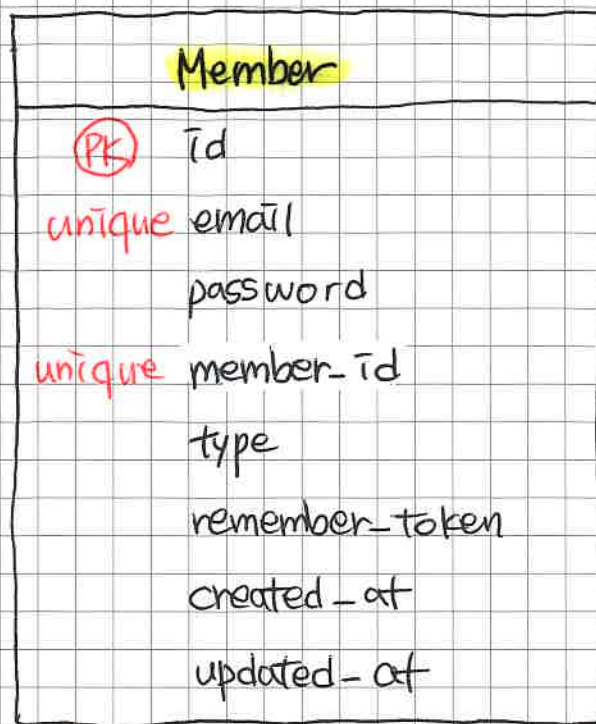 Member
PK id
unique email
password
unique member_id
type
remember_token
created_at
updated_at